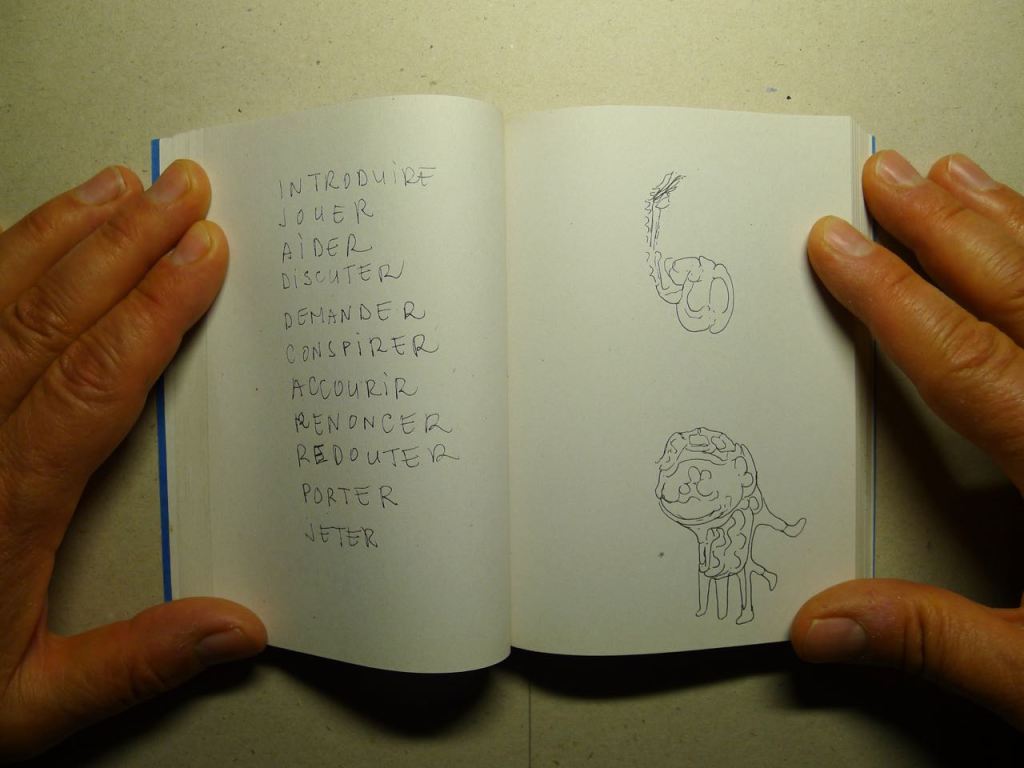 INTRODUIRE
JOUER
AIDER
DISCUTER
DEMANDER
CONSPIRER
ACCOURIR
RENONCER
REDOUTER
PORTER
JETER